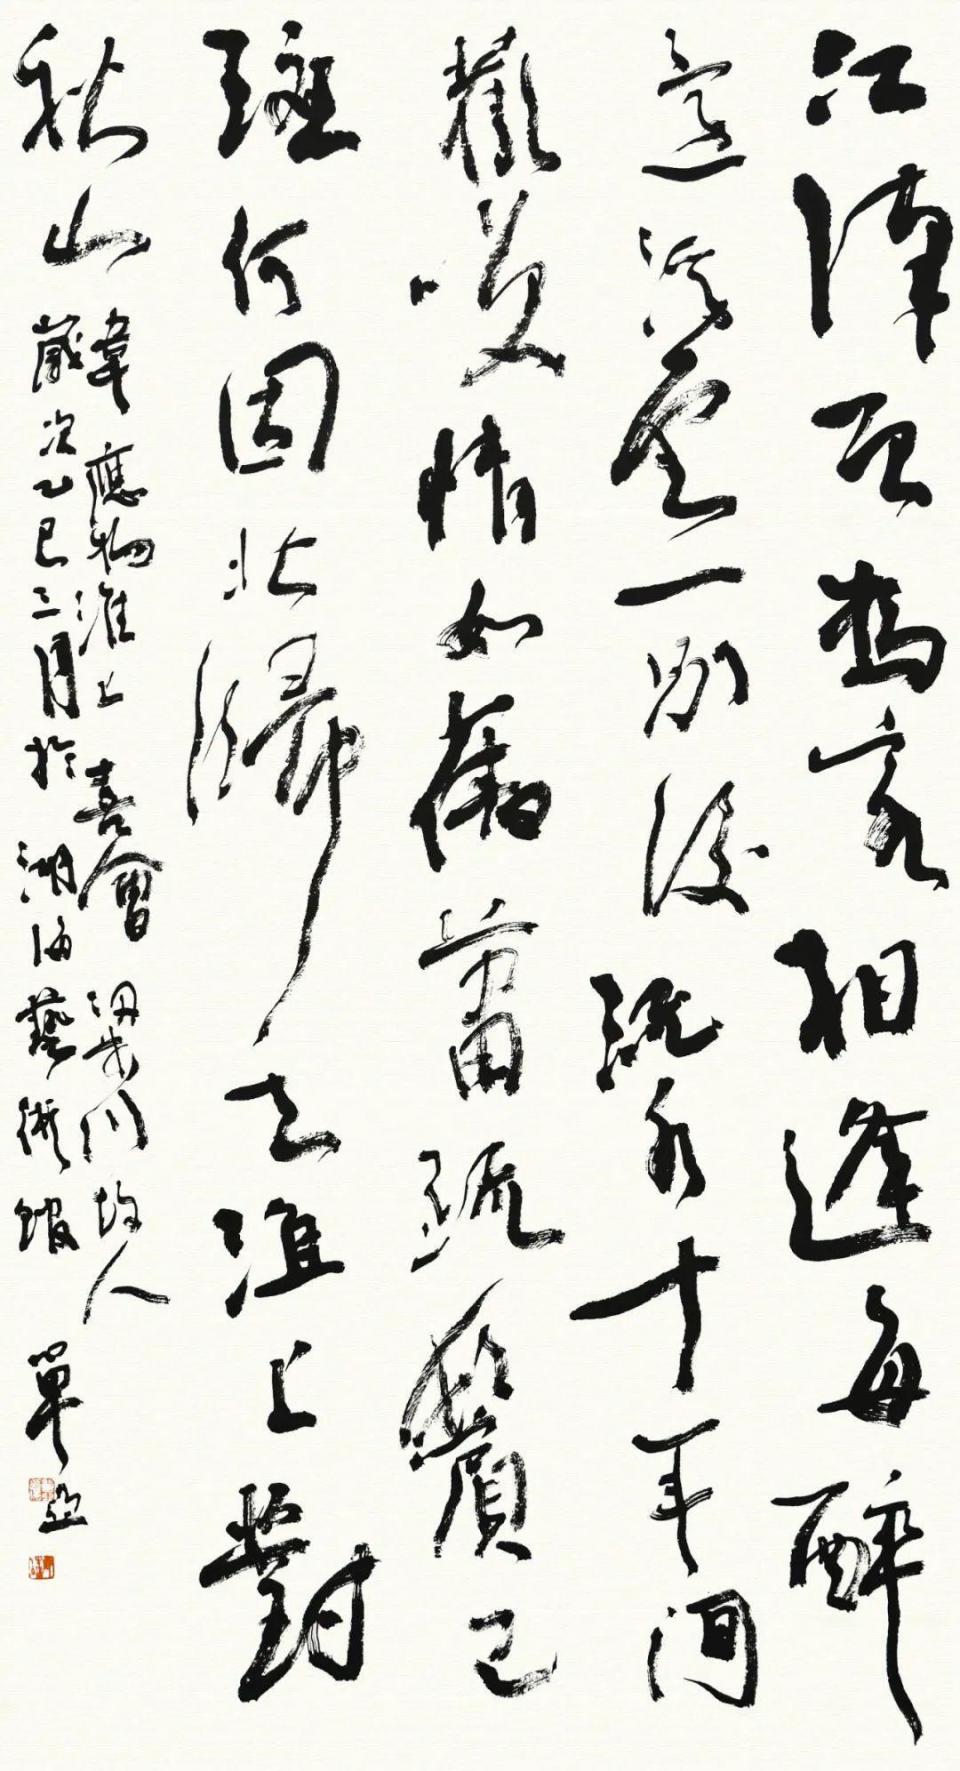 江漢曾為客相逢每醉
還浮雲一別後流水十年間
歡咲情如舊蕭疏鬢已
斑何因北歸去淮上對
秋山
韋應物淮上喜會梁川故人
歲次乙巳三月於湖海藝術館 單亞